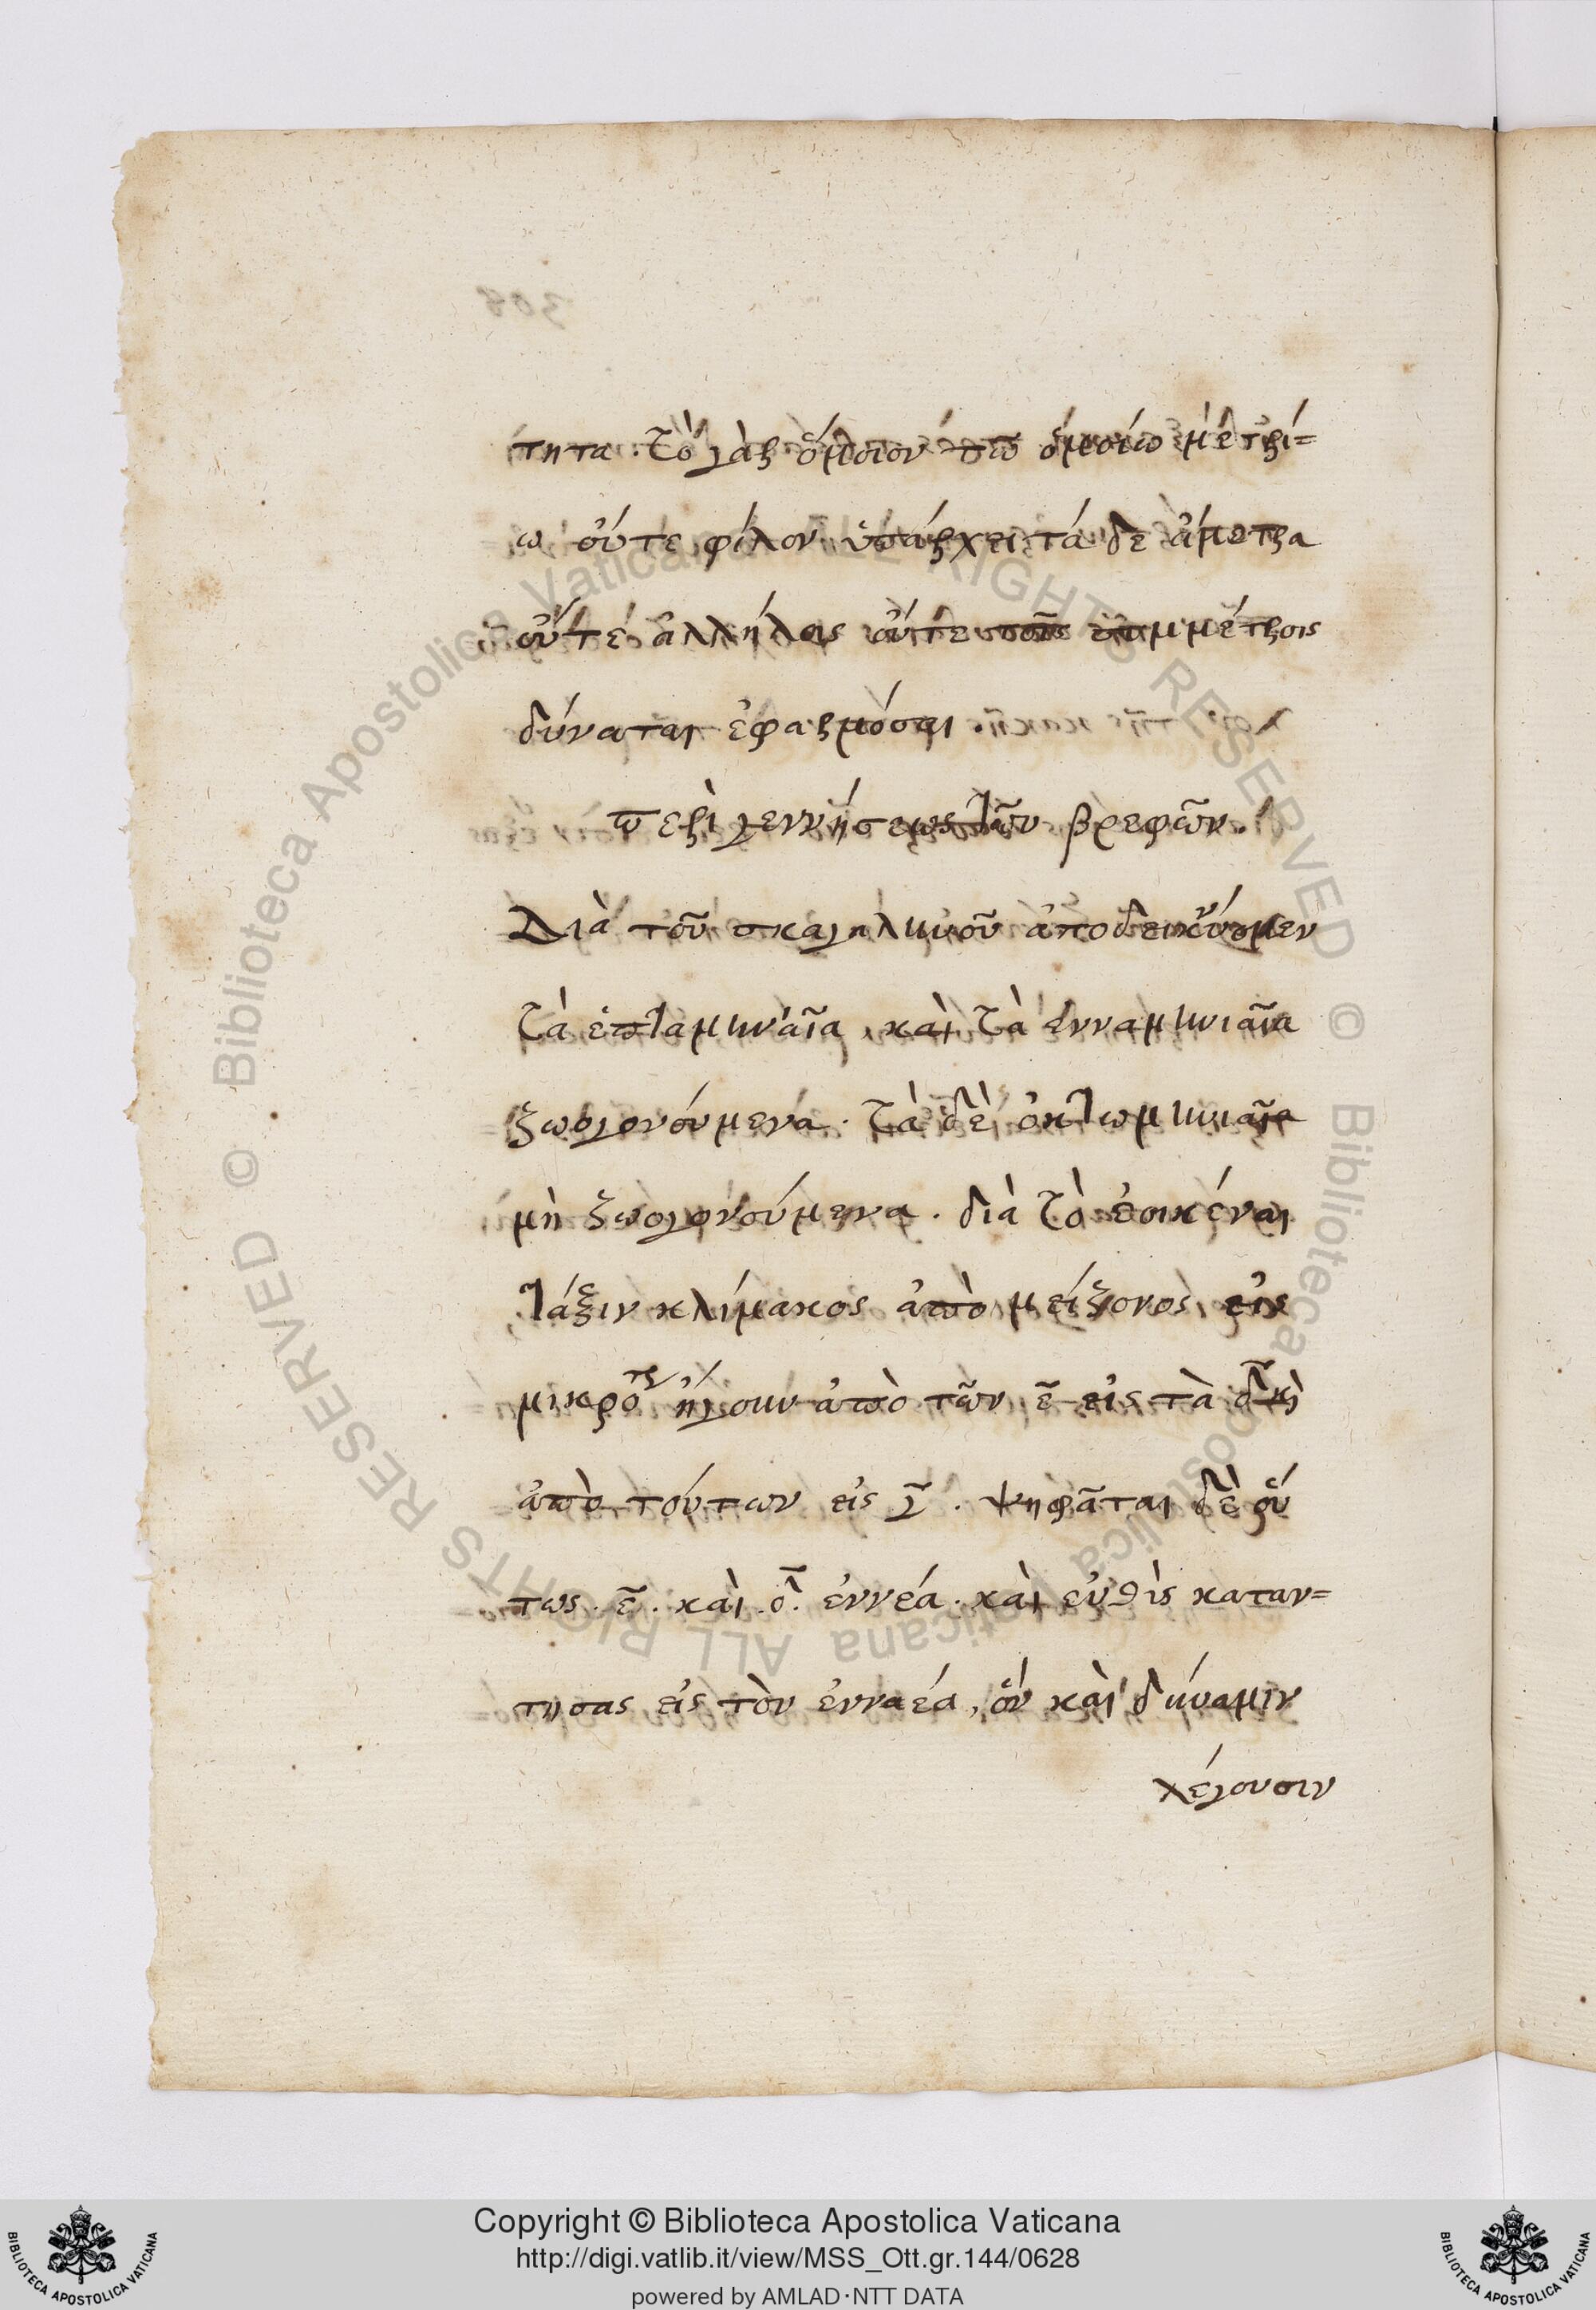 τητα. τὸ γὰρ ὅμοιον τῶ ὁμοίω μετρί=
ω οὔτε φίλον ὑπάρχει τά δε ἄμετρα
οὔτε ἀλλήλοις οὔτε τοῖς συμμέτροις
δύναται ἐφαρμόσαι.
περὶ γεννήσεως τῶν βρεφῶν.
Διὰ τοῦ σκαληνοῦ ἀποδεικνύομεν
τὰ ἑπταμηνιαῖα, καὶ τὰ ἐνναμηνιαῖα
ζωογονούμενα. τὰ δὲ ὀκτωμηνιαῖα
μὴ ζωογονούμενα. διὰ τὸ ἐοικέναι
τάξιν κλίμακος ἀπὸ μείζονος εἰς
μικρότερον ἤγουν ἀπὸ τῶν ε̄ εἰς τὰ δ̄ κὶ
ἀπὸ τούτων εἰς γ̄. ψηφᾶται δὲ οὕ
τως. ε̄. καὶ δ̄. ἐννέα. καὶ εὐθὶς καταν=
τησας εἰς τὸν ἐνναέα, ὃν καὶ δύναμιν
λέγουσιν
308
Copyright © Biblioteca Apostolica Vaticana
http://digi.vatlib.it/view/MSS_Ott.gr.144/0628
powered by AMLAD·NTT DATA
BIBLIOTECA APOSTOLICA VATICANA
BIBLIOTECA APOSTOLICA VATICANA
© Biblioteca Apostolica Vaticana ALL RIGHTS RESERVED © Biblioteca Apostolica Vaticana ALL RIGHTS RESERVED